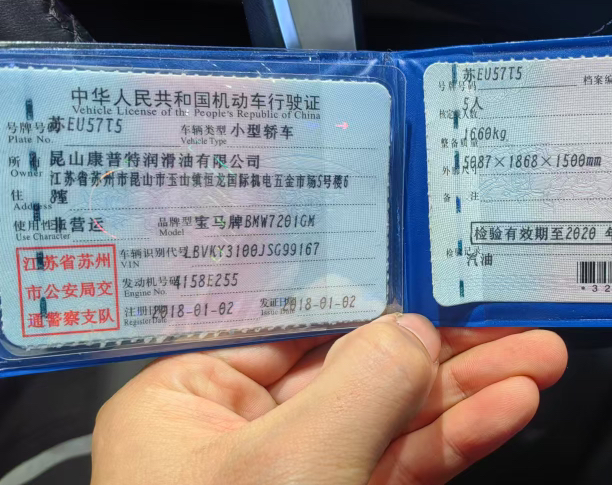 中华人民共和国机动车行驶证
Vehicle License of the People's Republic of China
号牌号码 苏EU57T5 车辆类型 小型轿车
Plate No. Vehicle Type
所有 昆山康普特润滑油有限公司
Owner
江苏省苏州市昆山市玉山镇恒龙国际机电五金市场5号楼6
住
Address
使用性 非营运 品牌型 宝马牌BMW7201GM
Use Character Model
江苏省苏州
市公安局交
通警察支队
车辆识别代号 LBVKY3100JSG99167
VIN
发动机号码 4158E255
Engine No.
注册日 2018-01-02 发证日 2018-01-02
Register Date Issue Date
号牌号码 苏EU57T5 档案编
核定载人数 5人
整备质量 1660kg
外廓尺寸 5087×1868×1500mm
备 注
检验有效期至2020 年
检
汽油